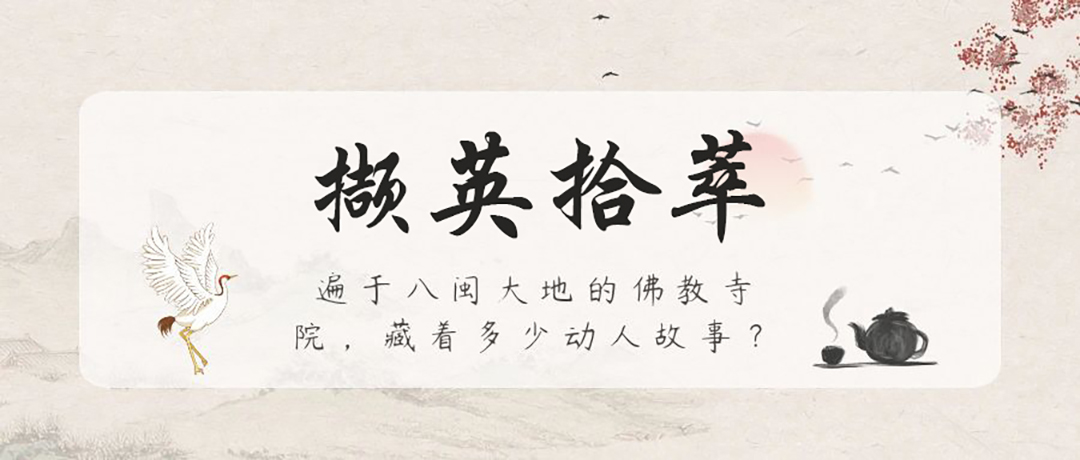 撷英拾萃
遍于八闽大地的佛教寺
院，藏着多少动人故事？